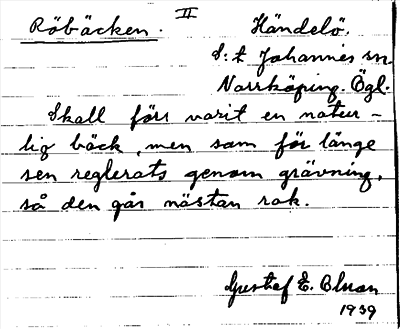 II
Röbäcken. Händelö.
S:t Johannes sn
Norrköping. Ögl.
Skall förr varit en natur-
lig bäck, men som för länge
sen reglerats genom grävning,
så den går nästan rak.
Gustaf E.
1939